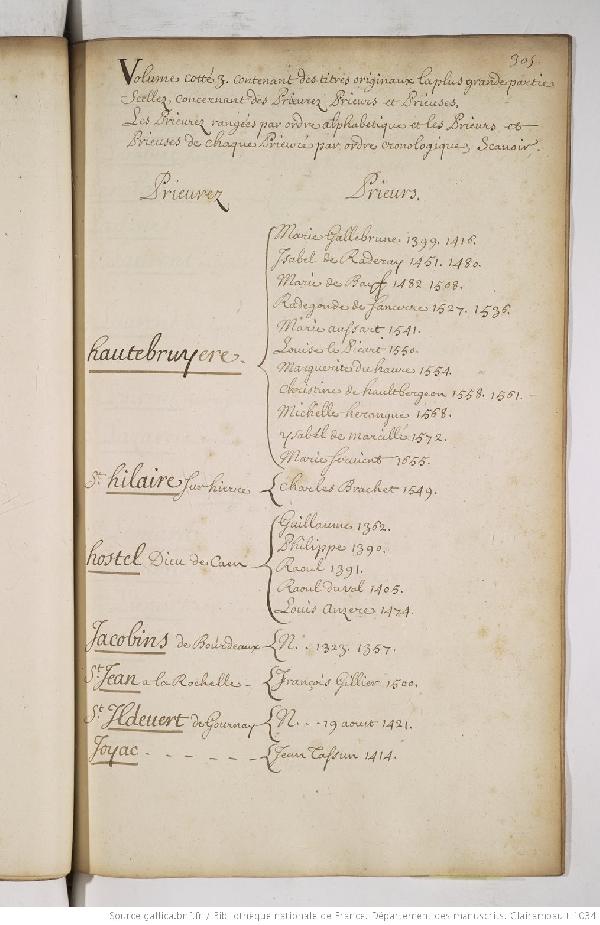 305.
Volume cotté 3. contenant des titres originaux la plus grande partie
Scellez, concernant des Prieurez Prieurs et Prieuses.
Les Prieurez rangées par ordre alphabetique et les Prieurs et
Prieuses de chaque Prieuré par ordre cronologique, Scavoir.
Prieurez
Prieurs.
Marie Gallebrune 1399. 1416.
Isabel de Raderay 1451. 1480.
Marie de 1482 1508.
Radegonde de Sancerre 1527. 1536.
Marie aussart 1541.
Louise le Picart 1550.
hautebruyere.
Marguerite du haure 1554.
Christine de haultbergeon 1558. 1561.
Michelle herouque 1568.
ysabel de marcillé 1572.
Marie 1655.
St. hilaire sur hierre
Charles Brachet 1549.
Guillaume 1362.
Philippe 1390.
hostel Dieu de Caen
Raoul 1391.
Raoul duval 1405.
Louis Anzere 1474.
Jacobins de Bourdeaux
N. . 1323. 1357.
St. Jean a la Rochelle
François Gillier 1500.
St. Ildevert de Gournay
N. - - 19 aoust 1421.
Joyac - - - - - -
Jean 1414.
Source gallica.bnf.fr / Bibliothèque nationale de France. Département des manuscrits. Clairambault 1034